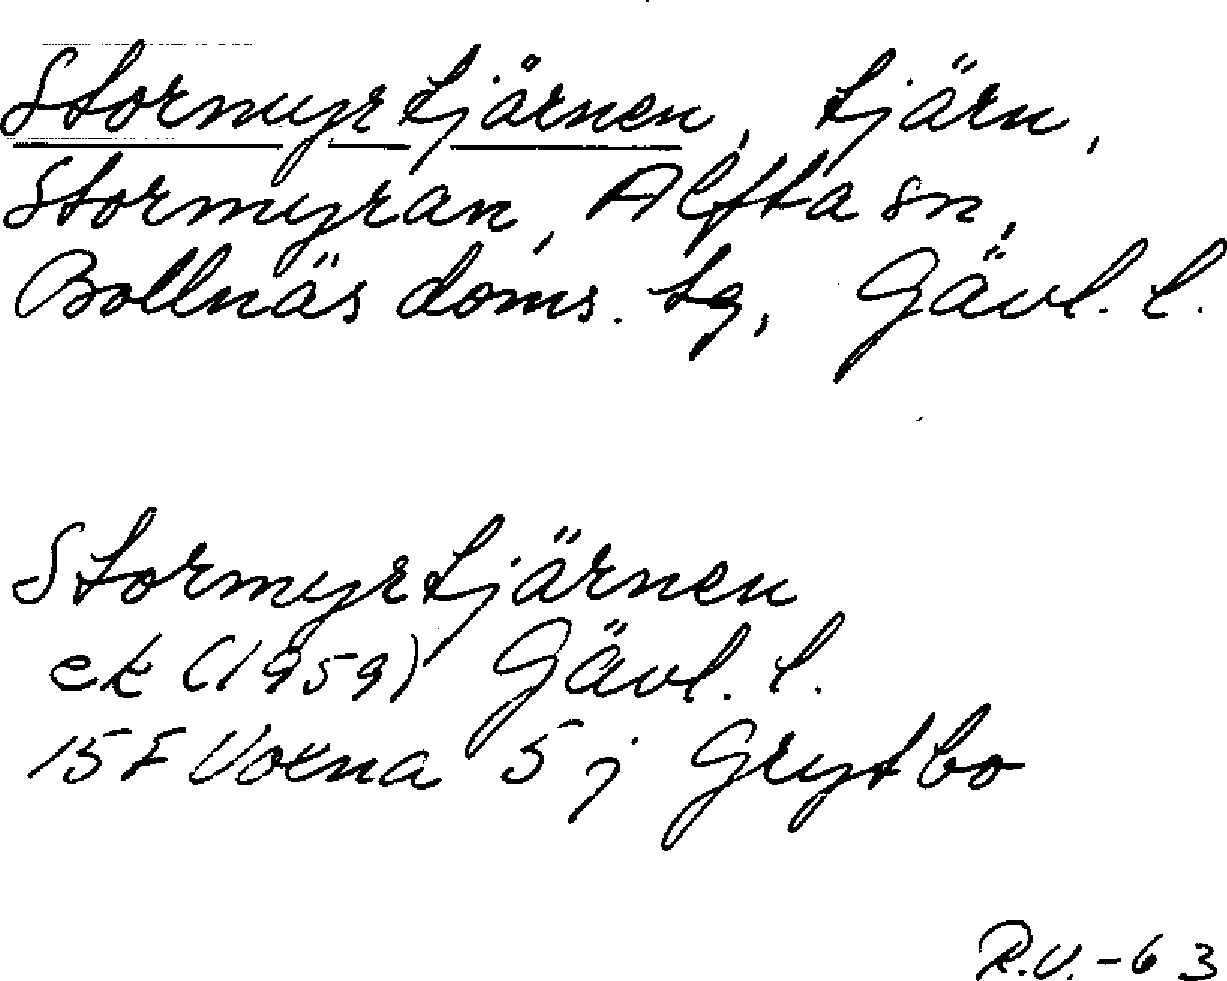 Stormyrtjärnen, tjärn,
Stormyran, Alfta sn,
Bollnäs doms. tg, Gävl. l.
Stormyrtjärnen
ek (1959) Gävl. l.
15 F Voxna 5 j Grytbo
R.V.-63